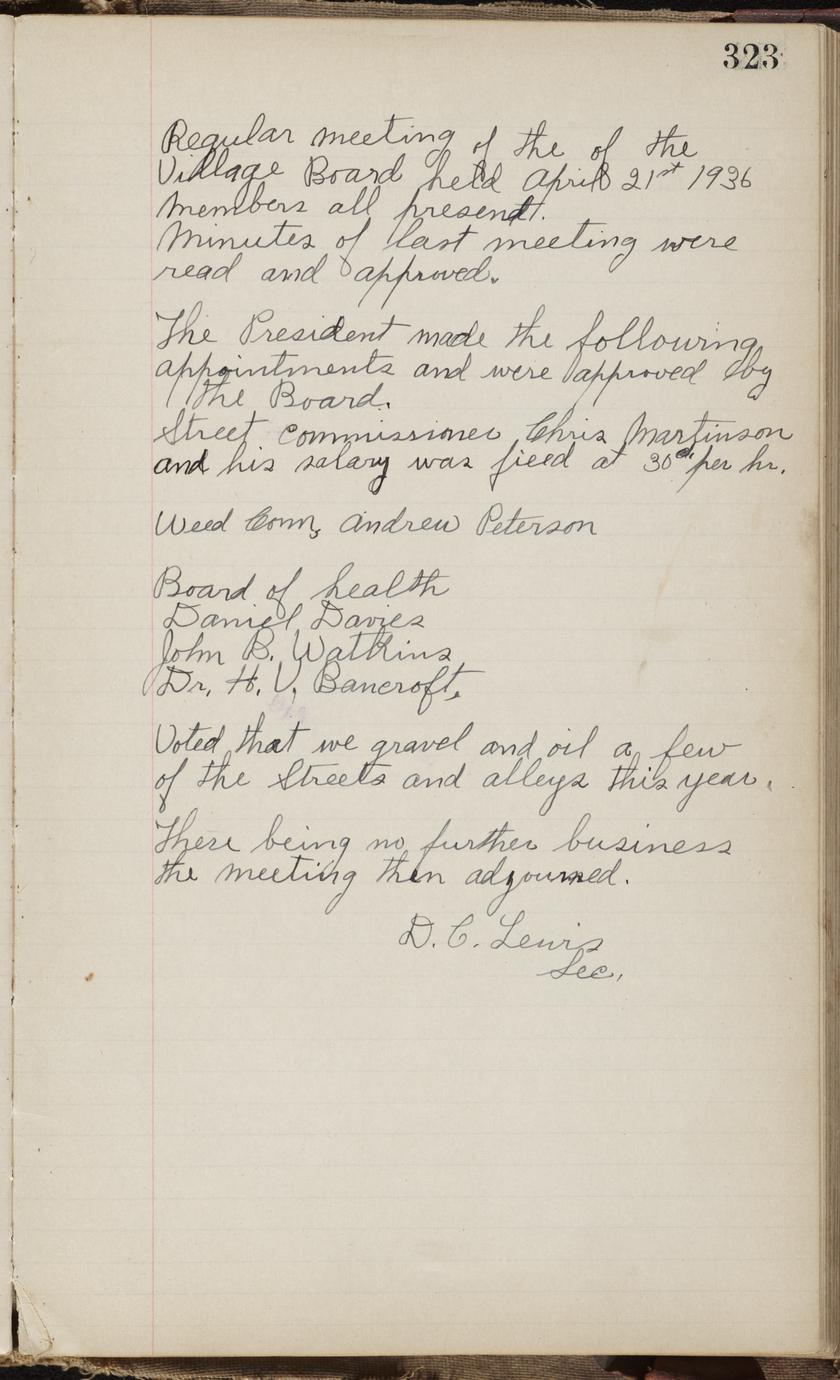 323
Regular meeting of the of the
Village Board held April 21st 1936
Members all present.
Minutes of last meeting were
read and approved.
The President made the following
appointments and were approved by
the Board.
Street commissioner Chris Martinson
and his salary was fixed at 30¢ per hr.
Weed Com, Andrew Peterson
Board of health
Daniel Davies
John B. Watkins
Dr. H. V. Bancroft.
Voted that we gravel and oil a few
of the Streets and alleys this year.
There being no further business
the meeting then adjourned.
D. C. Lewis
Sec.